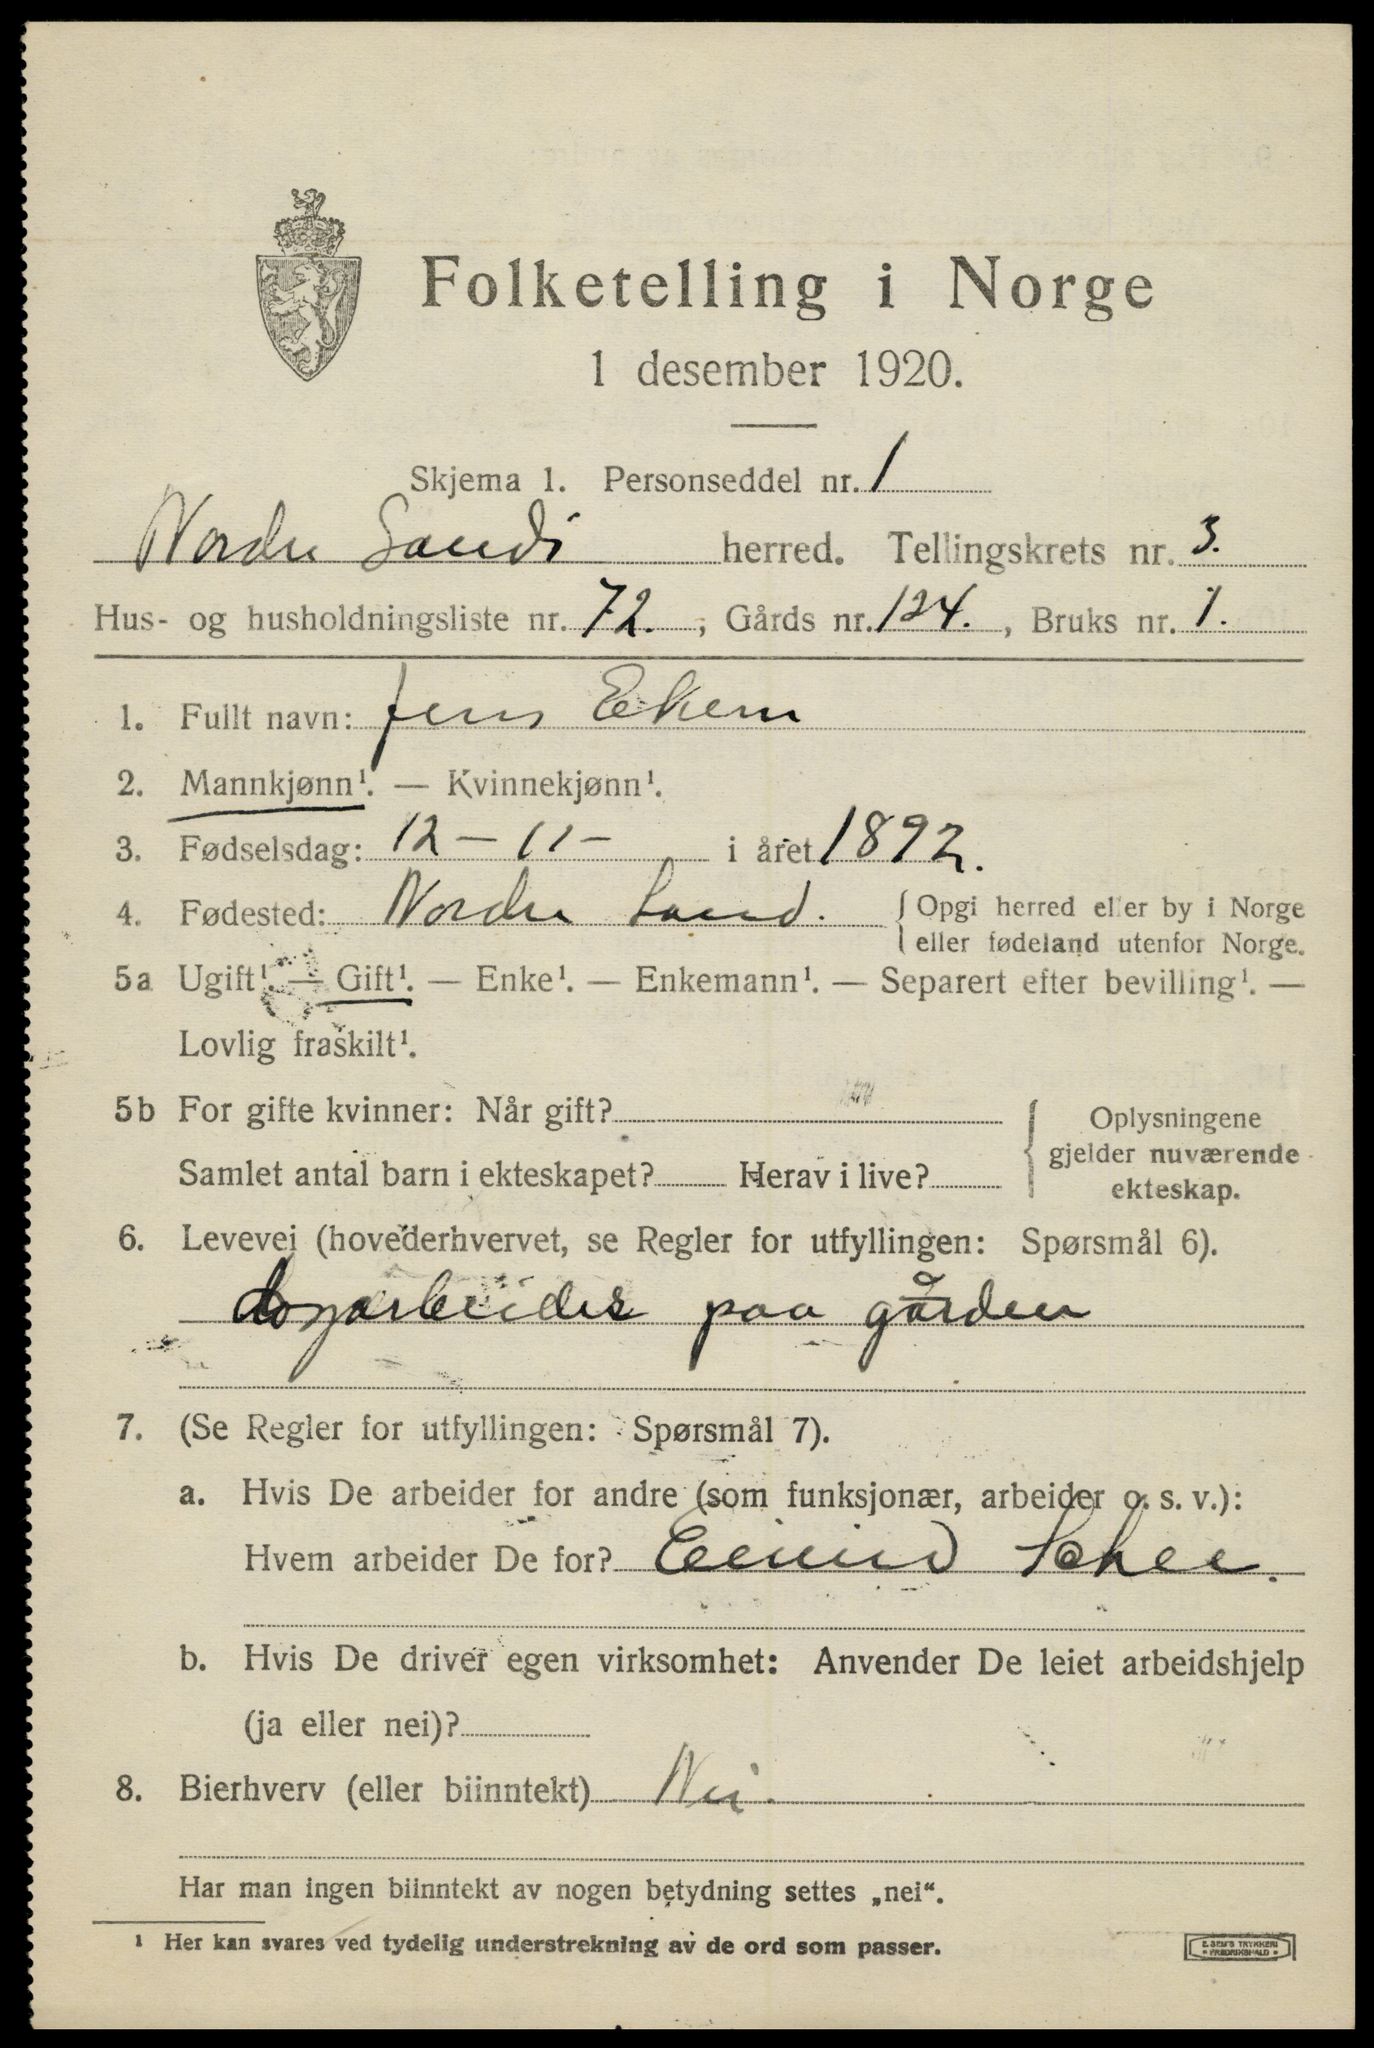 Folketelling i Norge
1 desember 1920.
Skjema 1. Personseddel nr. 1
Nordre Land herred. Tellingskrets nr. 3.
Hus- og husholdningsliste nr. 72. , Gårds nr. 124. , Bruks nr. 1.
1. Fullt navn: Jens Ekern
2. Mannkjønn¹. — Kvinnekjønn¹.
3. Fødselsdag: 12 - 11 - i året 1892.
4. Fødested: Nordre Land. { Opgi herred eller by i Norge
eller fødeland utenfor Norge.
5a Ugift¹. — Gift¹. — Enke¹. — Enkemann¹. — Separert efter bevilling¹. —
Lovlig fraskilt¹.
5b For gifte kvinner: Når gift?
Samlet antal barn i ekteskapet? Herav i live?
Oplysningene
gjelder nuværende
ekteskap.
6. Levevei (hovederhvervet, se Regler for utfyllingen: Spørsmål 6).
paa gården
7. (Se Regler for utfyllingen: Spørsmål 7).
a. Hvis De arbeider for andre (som funksjonær, arbeider o. s. v.):
Hvem arbeider De for?
b. Hvis De driver egen virksomhet: Anvender De leiet arbeidshjelp
(ja eller nei)?
8. Bierhverv (eller biinntekt) Nei.
Har man ingen biinntekt av nogen betydning settes „nei“.
¹ Her kan svares ved tydelig understrekning av de ord som passer.
E. SEM'S TRYKKERI
* FREDRIKSHALD *